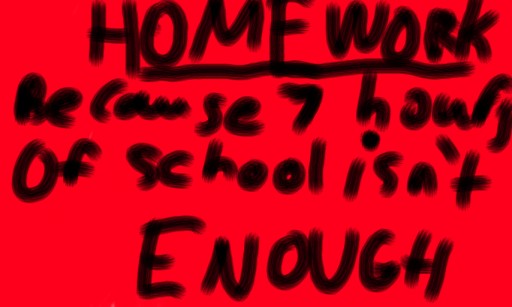 HOMEWORK
Because 7 hours
Of school isn't
ENOUGH